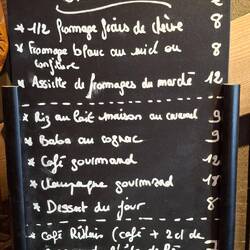 * 1/2 fromage frais de chèvre 8
* Fromage blanc au miel ou 8
confiture
* Assiette de fromages du marché 12
* Riz au lait maison au caramel 9
* Baba au cognac 9
* Café gourmand 12
* Champagne gourmand 18
* Dessert du jour 8
* Café Rétais (café + 2cl de